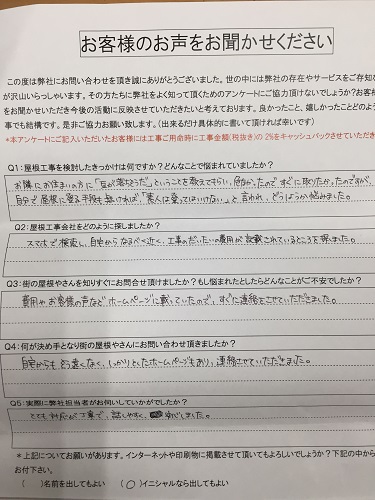 お客様のお声をお聞かせください
この度は弊社にお問い合わせを頂き誠にありがとうございました。世の中には弊社の存在やサービスをご存知
が沢山いらっしゃいます。その方たちに弊社をよく知って頂くためのアンケートにご協力頂けないでしょうか?お客様
をお聞かせいただき今後の活動に反映させていただきたいと考えております。良かったこと、嬉しかったことどのよう
事でも結構です。是非ご協力お願い致します。(出来るだけ具体的に書いて頂ければ幸いです)
*本アンケートにご記入いただいたお客様には工事ご用命時に工事金額(税抜き)の 2%をキャッシュバックさせていただき
Q1:屋根工事を検討したきっかけは何ですか?どんなことで悩まれていましたか?
お隣にお住まいの方に「瓦が落ちそうだ」ということを教えてもらい、危なかったのですぐに取りたかったのですが、
自分で屋根に登る手段も無ければ「素人は登ってはいけない」と言われ、どうしようか悩みました。
Q2:屋根工事会社をどのように探しましたか?
スマホで検索し、自宅からなるべく近く、工事のだいたいの費用が記載されているところを探しました。
Q3:街の屋根やさんを知りすぐにお問合せ頂けましたか?もし悩まれたとしたらどんなことがご不安でしたか?
費用やお客様の声などホームページに載っていたので、すぐに連絡をさせていただきました。
Q4:何が決め手となり街の屋根やさんにお問い合わせ頂きましたか?
自宅からもそう遠くなく、しっかりとしたホームページもあり、連絡させていただきました。
Q5:実際に弊社担当者がお伺いしていかがでしたか?
とても対応が丁寧で、話しやすく、安心しました。
*上記についてお願いがあります。インターネットや印刷物に掲載させて頂いてもよろしいでしょうか?下記の中から
お付下さい。
( )名前を出してもよい (○)イニシャルなら出してもよい